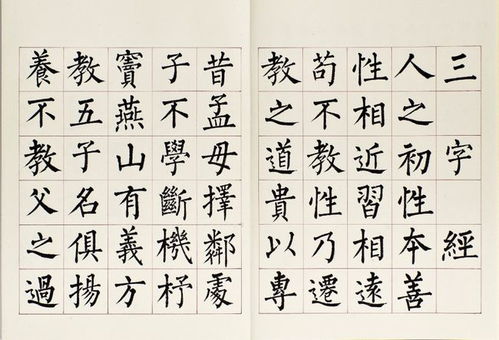 三字經
人之初性本善
性相近習相遠
苟不教性乃遷
教之道貴以專
昔孟母擇鄰處
子不學斷機杼
竇燕山有義方
教五子名俱揚
養不教父之過